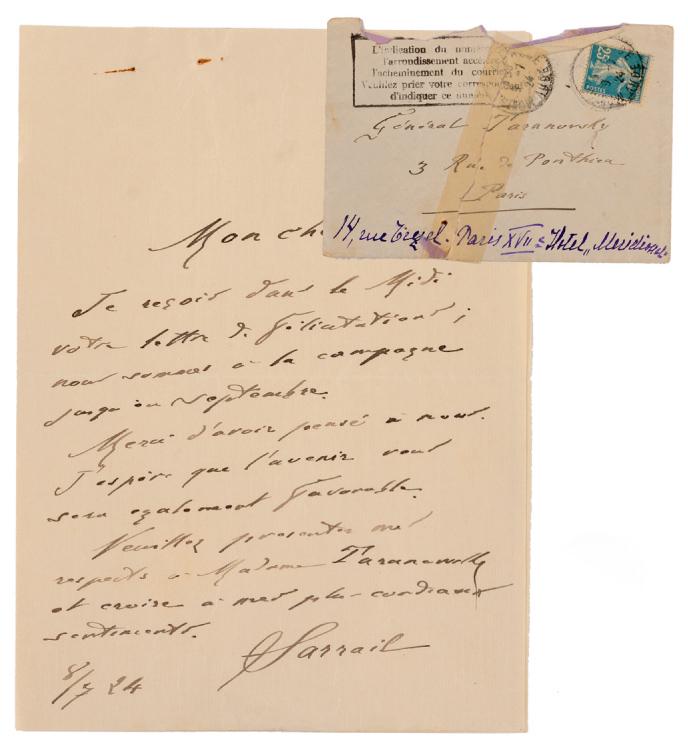 L'indication du numé
l'arrondissement accélè
l'acheminement du courrie
Veuillez prier votre correspon
d'indiquer ce numé
Général Taranovsky
3 Rue de Ponthieu
Paris
14, rue Troyel. Paris XVII e Hotel „Méridional"
Mon ch
Je reçois dans le Midi
votre lettre de félicitations ;
nous sommes à la campagne
jusqu'en septembre.
Merci d'avoir pensé à nous.
J'espère que l'avenir vous
sera également favorable.
Veuillez présenter mes
respects à Madame Taranovsky
et croire à mes plus cordiaux
sentiments.
Sarrail
8/7 24